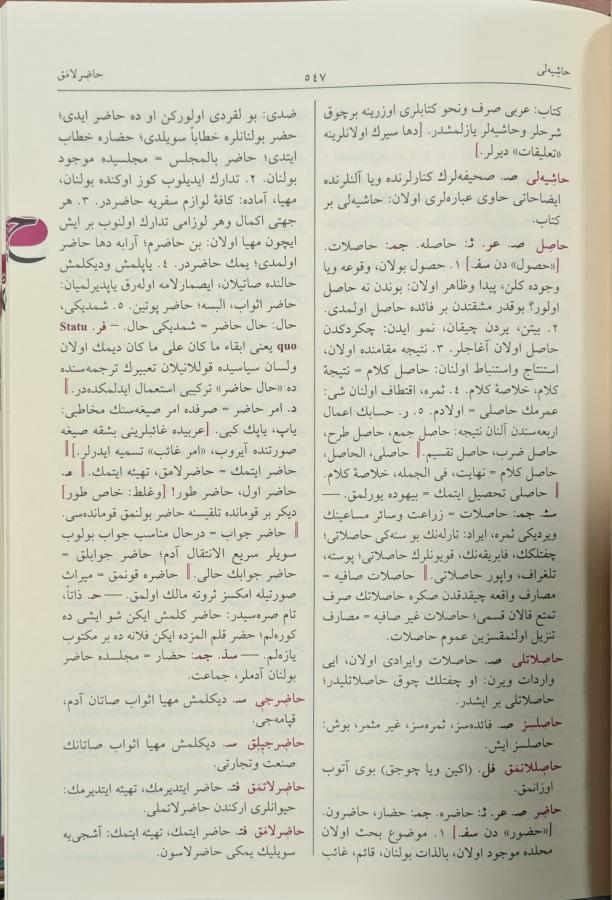 حاشیه‌لی
٥٤٧
حاضرلامق
كتاب: عربی صرف ونحو كتابلری اوزرینه برچوق
شرحلر وحاشیه‌لر یازلمشدر. [دها سیرك اولانلرینه
«تعلیقات» دیرلر.]
حاشیه‌لی صـ. صحیفه‌لرك كنارلرنده ویا آلتلرنده
ایضاحاتی حاوی عباره‌لری اولان: حاشیه‌لی بر
كتاب.
حاصل صـ. عر. ثـ: حاصله. جمـ: حاصلات.
[«حصول» دن سفـ.] ١. حصول بولان، وقوعه ویا
وجوده كلن، پیدا وظاهر اولان: بوندن نه حاصل
اولور؟ بوقدر مشقتدن بر فائده حاصل اولمدی.
٢. بیتن، یردن چیقان، نمو ایدن: چكردكدن
حاصل اولان آغاجلر. ٣. نتیجه مقامنده اولان،
استنتاج واستنباط اولنان: حاصل كلام = نتیجهٔ
كلام، خلاصهٔ كلام. ٤. ثمره، اقتطاف اولنان شی:
عمرمك حاصلی = اولادم. ٥. ر. حسابك اعمال
اربعه‌سندن آلنان نتیجه: حاصل جمع، حاصل طرح،
حاصل ضرب، حاصل تقسیم. ‖ حاصلی، الحاصل،
حاصل كلام = نهایت، فی الجمله، خلاصهٔ كلام.
‖ حاصلی تحصیل ایتمك = بیهوده یورلمق. —
سثـ. جمـ: حاصلات = زراعت وسائر مساعینك
ویردیكی ثمره، ایراد: تارله‌نك بو سنه‌كی حاصلاتی؛
چفتلكك، فابریقه‌نك، قویونلرك حاصلاتی؛ پوسته،
تلغراف، واپور حاصلاتی. ‖ حاصلات صافیه =
مصارف واقعه چیقدقدن صكره حاصلاتك صرف
تمتع قالان قسمی؛ حاصلات غیر صافیه = مصارف
تنزیل اولنمقسزین عموم حاصلات.
حاصلاتلی صـ. حاصلات وایرادی اولان، ایی
واردات ویرن: او چفتلك چوق حاصلاتلیدر؛
حاصلاتلی بر ایشدر.
حاصلسز صـ. فائده‌سز، ثمره‌سز، غیر مثمر، بوش:
حاصلسز ایش.
حاصللانمق فل. (اكین ویا چوجق) بوی آتوب
اوزانمق.
حاضر صـ. عر. ثـ: حاضره. جمـ: حضار، حاضرون.
[«حضور» دن سفـ.] ١. موضوع بحث اولان
محلده موجود اولان، بالذات بولنان، قائم، غائب
ضدی: بو لقردی اولوركن او ده حاضر ایدی؛
حضر بولنانلره خطاباً سویلدی؛ حضاره خطاب
ایتدی؛ حاضر بالمجلس = مجلسیده موجود
بولنان. ٢. تدارك ایدیلوب كوز اوكنده بولنان،
مهیا، آماده: كافهٔ لوازم سفریه حاضردر. ٣. هر
جهتی اكمال وهر لوزامی تدارك اولنوب بر ایش
ایچون مهیا اولان: بن حاضرم؛ آرابه دها حاضر
اولمدی؛ یمك حاضردر. ٤. یاپلمش ودیكلمش
حالنده صاتیلان، ایصمارلامه اوله‌رق یاپدیرلمیان:
حاضر اثواب، البسه؛ حاضر پوتین. ٥. شمدیكی،
حال: حال حاضر = شمدیكی حال. — فر. Statu
quo یعنی ابقاء ما كان علی ما كان دیمك اولان
ولسان سیاسیده قوللانیلان تعبیرك ترجمه‌سنده
ده «حال حاضر» تركیبی استعمال ایدلمكده‌در. ‖
د. امر حاضر = صرفده امر صیغه‌سنك مخاطبی:
یاپ، یاپك كبی. [عربیده غائبلرینی بشقه صیغه
صورتنده آیروب، «امر غائب» تسمیه ایدرلر.] ‖
حاضر ایتمك = حاضرلامق، تهیئه ایتمك. ‖ عـ.
حاضر اول، حاضر طور! [وغلط: خاص طور]
دیكر بر قومانده تلقیسنه حاضر بولنمق قومانده‌سی.
‖ حاضر جواب = درحال مناسب جواب بولوب
سویلر سریع الانتقال آدم؛ حاضر جوابلق =
حاضر جوابك حالی. ‖ حاضره قونمق = میراث
صورتیله امكسز ثروته مالك اولمق. — حـ. ذاتاً،
تام صره‌سیدر: حاضر كلمش ایكن شو ایشی ده
كوره‌لم؛ حضر قلم المزده ایكن فلانه ده بر مكتوب
یازه‌لم. — سذ. جمـ: حضار = مجلسده حاضر
بولنان آدملر، جماعت.
حاضرجی سـ. دیكلمش مهیا اثواب صاتان آدم،
قپامه‌جی.
حاضرجیلق سـ. دیكلمش مهیا اثواب صاتانك
صنعت وتجارتی.
حاضرلاتمق فتـ. حاضر ایتدیرمك، تهیئه ایتدیرمك:
حیوانلری اركندن حاضرلاتملی.
حاضرلامق فتـ. حاضر ایتمك، تهیئه ایتمك: آشجی‌یه
سویلیك یمكی حاضرلاسون.
ح